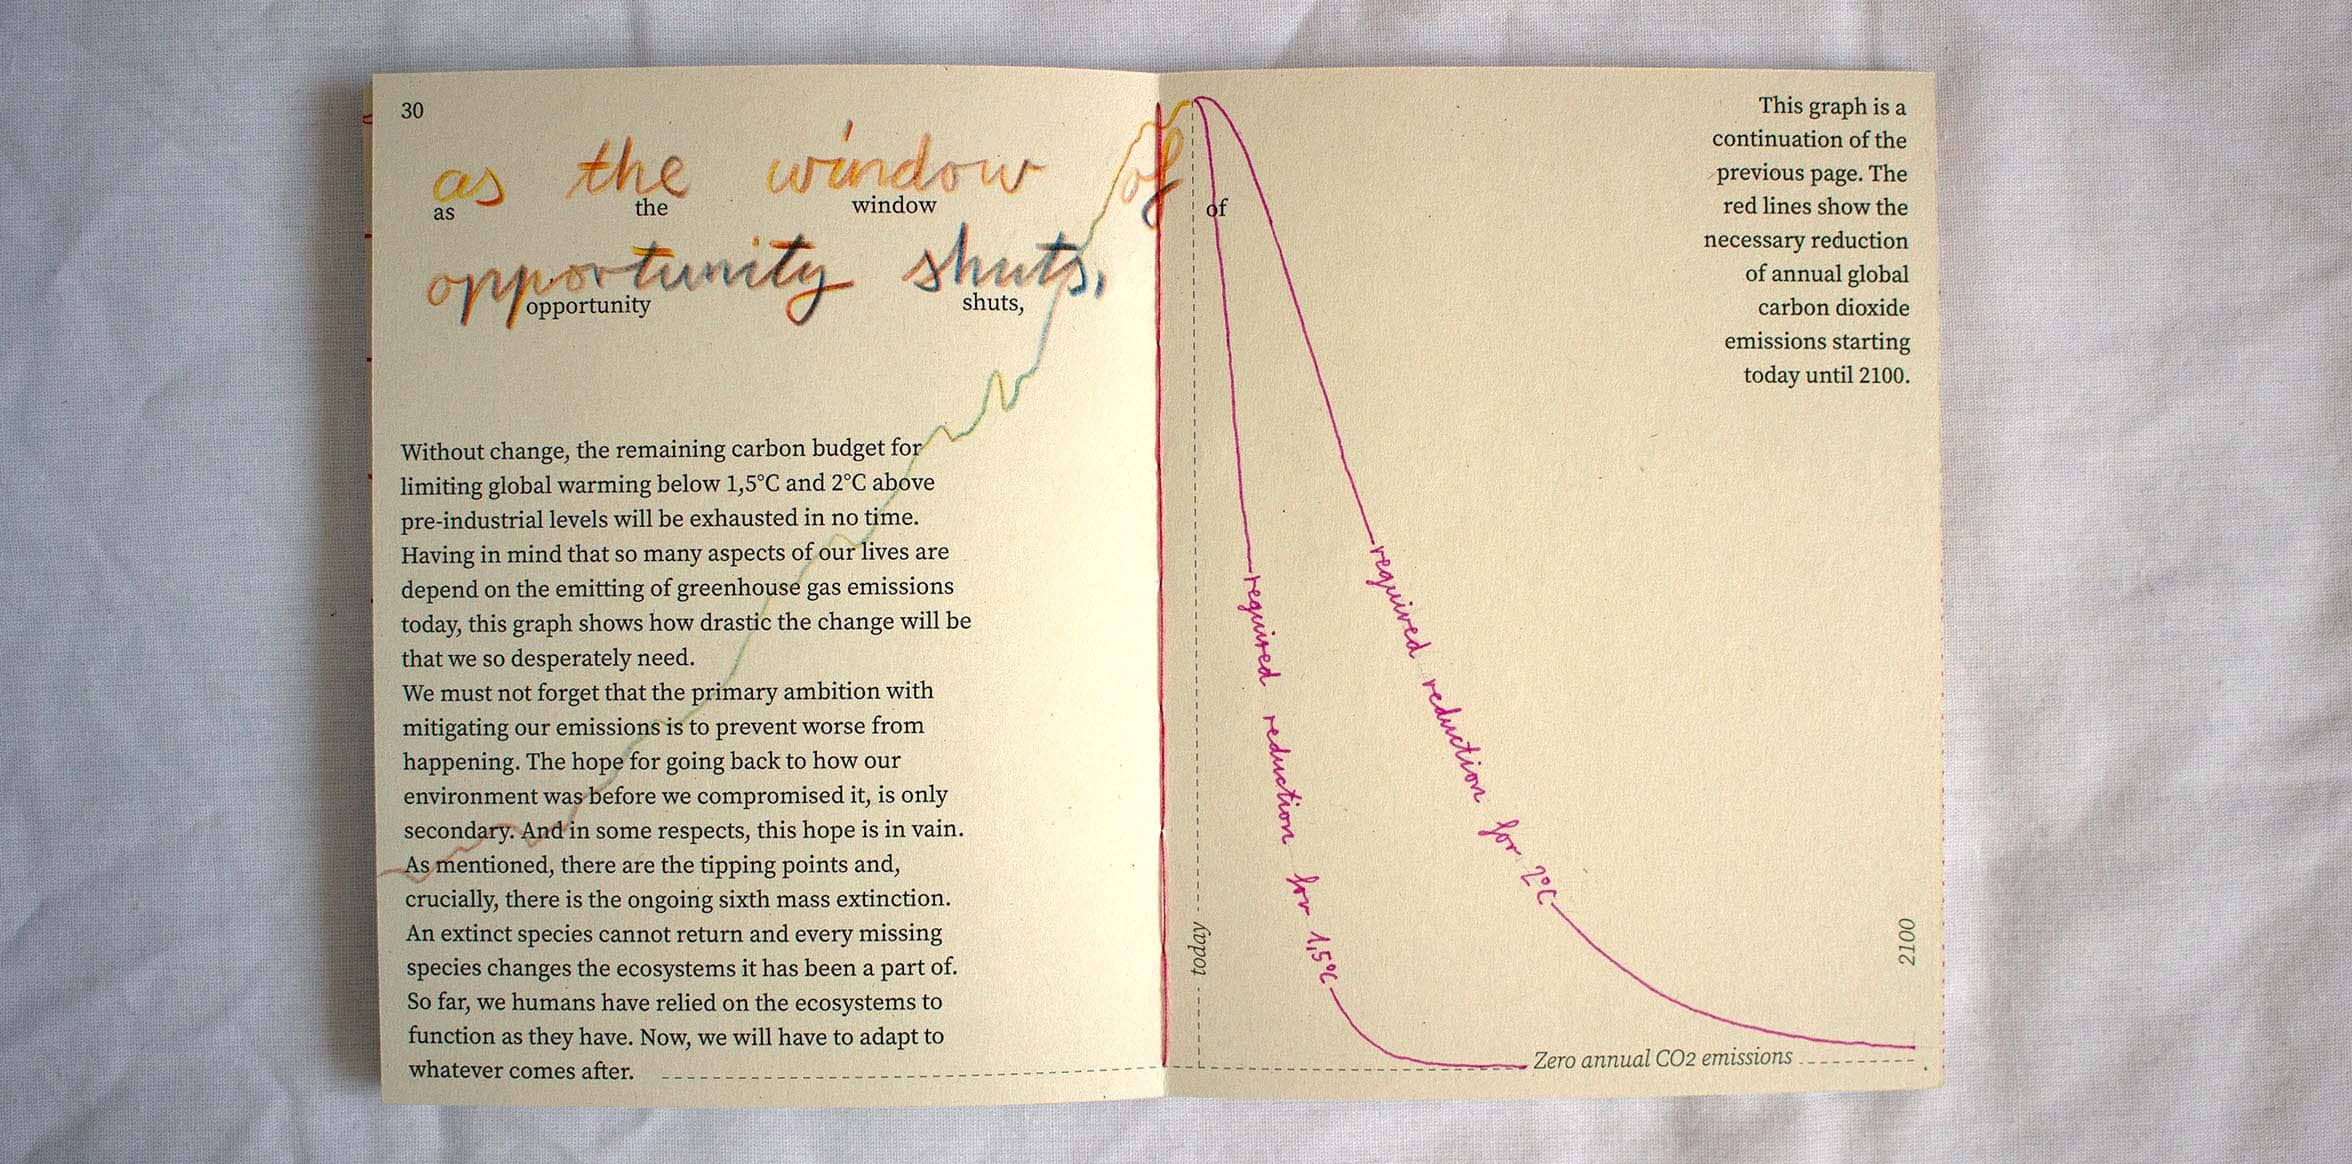 30
as the window of
as the window of
opportunity shuts,
opportunity shuts,
Without change, the remaining carbon budget for
limiting global warming below 1,5°C and 2°C above
pre-industrial levels will be exhausted in no time.
Having in mind that so many aspects of our lives are
depend on the emitting of greenhouse gas emissions
today, this graph shows how drastic the change will be
that we so desperately need.
We must not forget that the primary ambition with
mitigating our emissions is to prevent worse from
happening. The hope for going back to how our
environment was before we compromised it, is only
secondary. And in some respects, this hope is in vain.
As mentioned, there are the tipping points and,
crucially, there is the ongoing sixth mass extinction.
An extinct species cannot return and every missing
species changes the ecosystems it has been a part of.
So far, we humans have relied on the ecosystems to
function as they have. Now, we will have to adapt to
whatever comes after.
This graph is a
continuation of the
previous page. The
red lines show the
necessary reduction
of annual global
carbon dioxide
emissions starting
today until 2100.
today
required reduction for 1,5°C
required reduction for 2°C
2100
Zero annual CO2 emissions